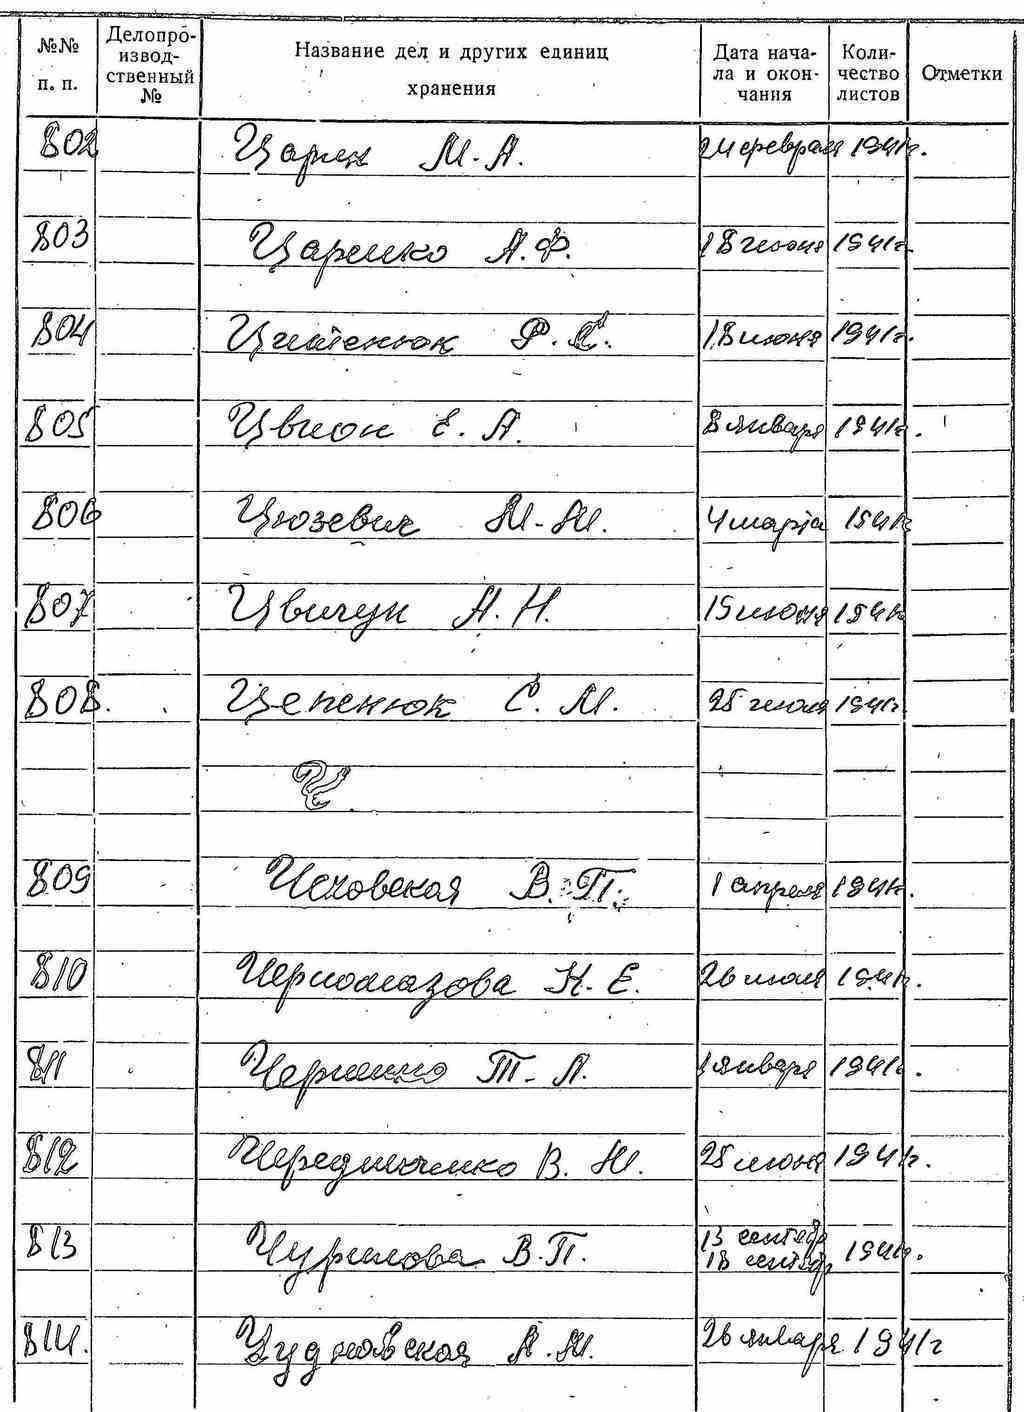 №№ п. п. Делопроизводственный № Название дел и других единиц хранения Дата начала и окончания Количество листов Отметки
802 Царик М. А. 24 феврал 1941г.
803 Царенко А. Ф. 18 июня 1941г.
804 Р. С. 18 июня 1941г.
805 Цвион Е. А. 8 января 1941г.
806 Цюзевич М. М. 4 марта 1941г
807 Цвичук А. Н. 15 июня 1941г
808. Цепенюк С. М. 25 июля 1941г
Ч.
809 Чеховская В. П. 1 апреля 1941г.
810 Черномазова Н. Е. 26 июля 1941г.
811 Черненко Т. А. 1 января 1941г.
812 Чередниченко В. М. 25 июня 1941г.
813 Чурилова В. П. 13 сентябр 18 сентябр 1941г.
814. Чудновская А. М. 26 января 1941г